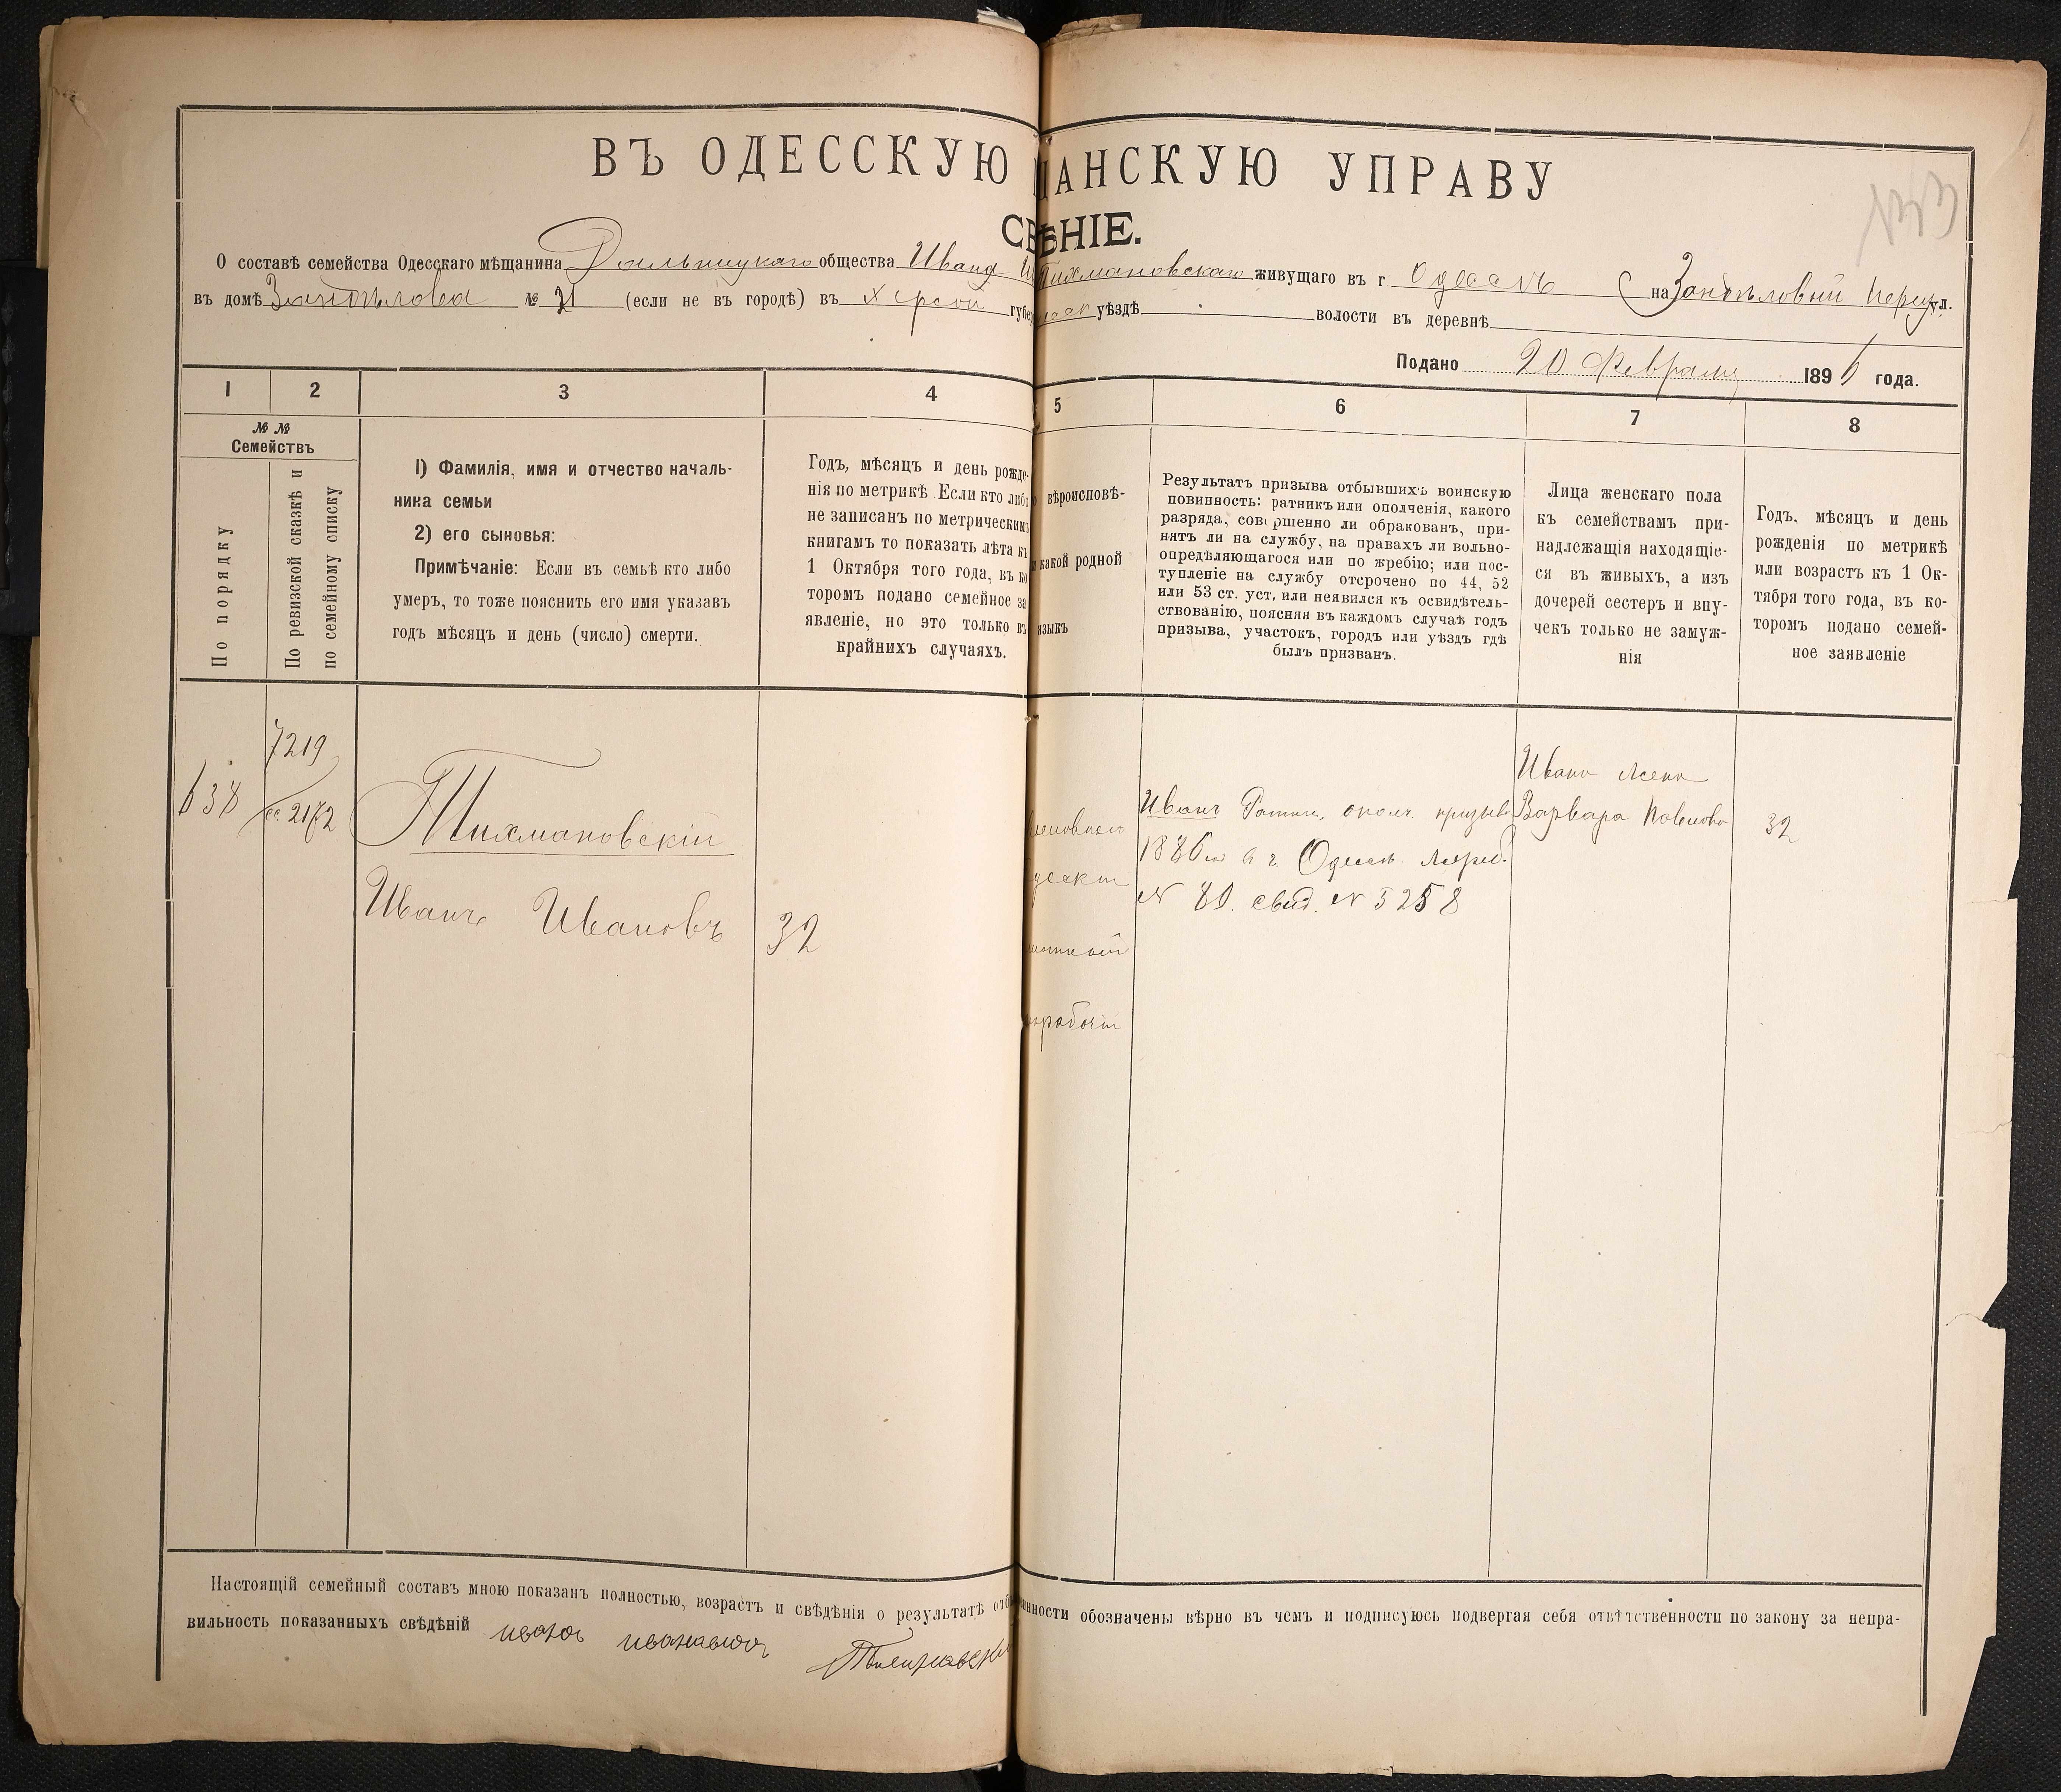 ВЪ ОДЕССКУЮ ЩАНСКУЮ УПРАВУ
СВѢНІЕ.
О составѣ семейства Одесскаго мѣщанина Дальницкаго общества Ивана И Тихмановскаго живущаго въ г Одессѣ на ул.
въ домѣ № 21 (если не въ городѣ) въ Херсон губер уѣздѣ волости въ деревнѣ
Подано 20 Февраля 1896 года.
1 2 3 4 5 6 7 8
№ №
Семействъ
По порядку
По ревизской сказкѣ и
по семейному списку
1) Фамилія, имя и отчество началь-
ника семьи
2) его сыновья:
Примѣчаніе: Если въ семьѣ кто либо
умеръ, то тоже пояснить его имя указавъ
годъ мѣсяцъ и день (число) смерти.
Годъ, мѣсяцъ и день рожде-
нія по метрикѣ. Если кто либо
не записанъ по метрическимъ
книгамъ то показать лѣта къ
1 Октября того года, въ ко
торомъ подано семейное за
явленіе, но это только въ
крайнихъ случаяхъ.
вѣроисповѣ-
какой родной
языкъ
Результатъ призыва отбывшихъ воинскую
повинность: ратникъ или ополченія, какого
разряда, совершенно ли обракованъ, при-
нятъ ли на службу, на правахъ ли вольно-
опредѣляющагося или по жребію; или пос-
тупленіе на службу отсрочено по 44, 52
или 53 ст. уст, или неявился къ освидѣтель-
ствованію, поясняя въ каждомъ случаѣ годъ
призыва, участокъ, городъ или уѣздъ гдѣ
былъ призванъ.
Лица женскаго пола
къ семействамъ при-
надлежащія находящіе-
ся въ живыхъ, а изъ
дочерей сестеръ и вну-
чекъ только не замуж-
нія
Годъ, мѣсяцъ и день
рожденія по метрикѣ
или возрастъ къ 1 Ок-
тября того года, въ ко-
торомъ подано семей-
ное заявленіе
638
7219
сс 2172
Тихмановскій
Иванъ Ивановъ 32
Иванъ Ратн. ополч. призыва
1886 въ г. Одессѣ. жереб.
№ 80. свид. № 5258
Ивана жена
Варвара Павлова 32
Настоящій семейный составъ мною показанъ полностью, возрастъ и свѣдѣнія о результатѣ отб нности обозначены вѣрно въ чемъ и подписуюсь подвергая себя отвѣтственности по закону за непра-
вильность показанныхъ свѣдѣній